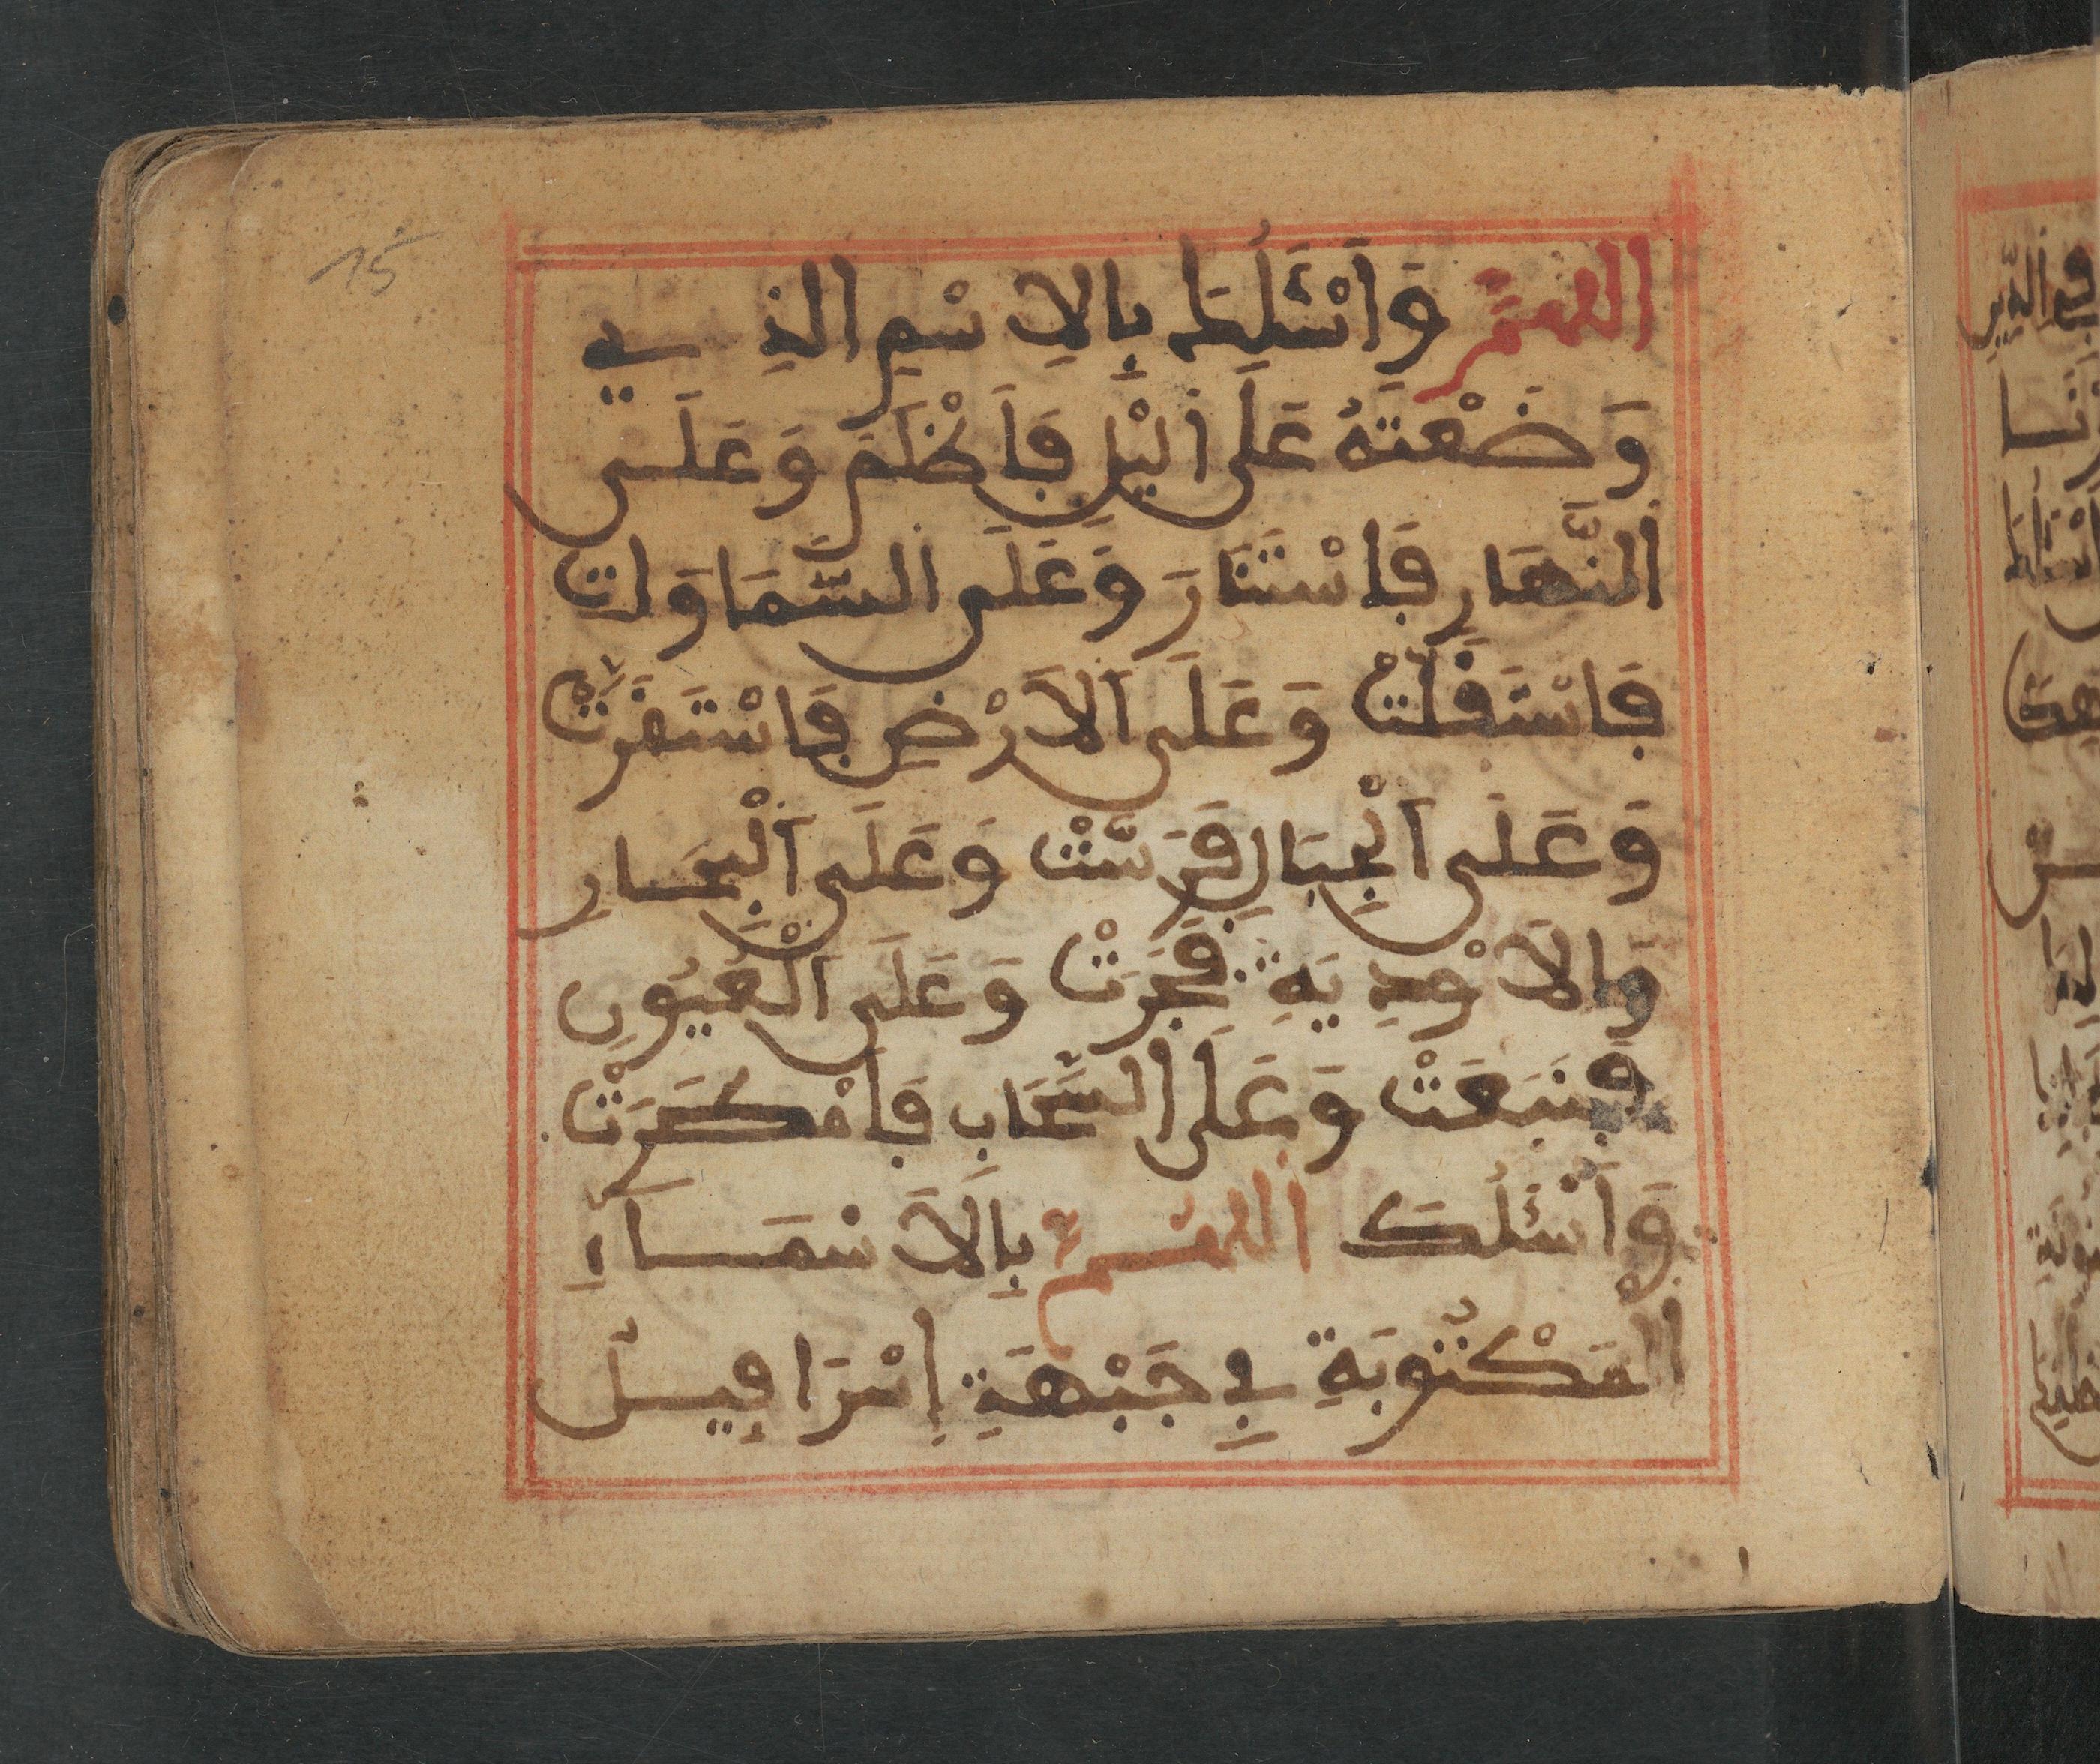 15
اللهم وَأَسْئَلُكَ بِالِاسْمِ الذِي
وَضَعْتَهُ عَلَى اليْلِ فَأَظْلَمَ وَعَلَى
النَّهَارِ فَاسْتَنَارَ وَعَلَى السَّمَاوَاتِ
فَاسْتَقَلَّتْ وَعَلَى الَارْضِ فَاسْتَقَرَّتْ
وَعَلَى الْجِبَالِ فَرَسَّتْ وَعَلَى الْبِحَارِ
وَالَاوْدِيَةِ فَجَرَتْ وَعَلَى الْعُيُونِ
فَنَبَعَتْ وَعَلَى السَّحَابِ فَأَمْطَرَتْ
وَأَسْئَلُكَ اللهم بِالَاسْمَاءِ
الْمَكْتُوبَةِ فِي جَبْهَةِ إِسْرَافِيلَ